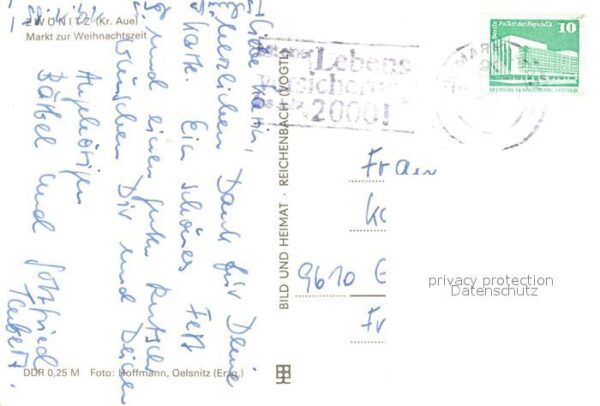 ZWÖNITZ (Kr. Aue)
Markt zur Weihnachtszeit
Liebe Karin,
Herzlichen Dank für Deine
Karte. Ein schönes Fest
und einen guten Rutsch
wünschen Dir und Deinen
Angehörigen
Bärbel und Gottfried
DDR 0,25 M Foto: Hoffmann, Oelsnitz (Erzg.)
BILD UND HEIMAT · REICHENBACH (VOGTL
Lebens
versicherung
2000!
10
Berlin Palast der Republik
DEUTSCHE DEMOKRATISCHE REPUBLIK
Frau
9610 G
privacy protection
Datenschutz